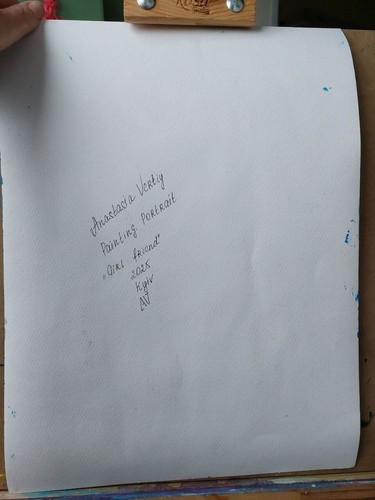 Anastasia Vertiy
Painting Portrait
„Girl friend"
2025
Kyiv
AV